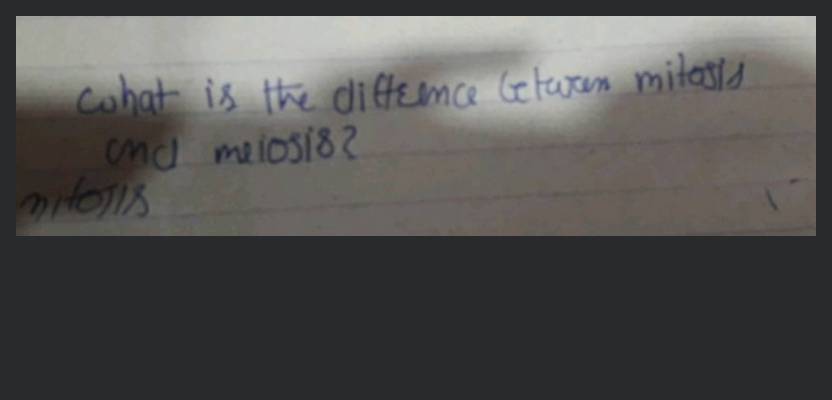 what is the diffeence between mitosis
and meiosis?
mitosis